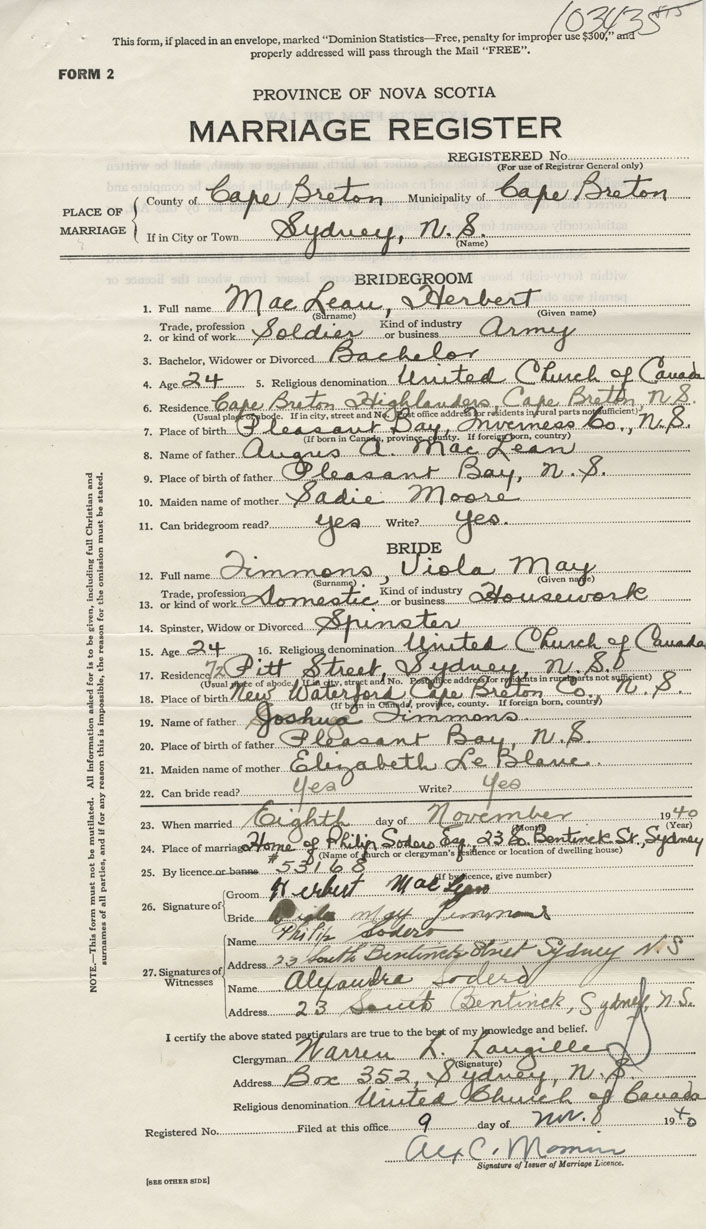 103435 875
This form, if placed in an envelope, marked "Dominion Statistics—Free, penalty for improper use $300," and
properly addressed will pass through the Mail "FREE".
FORM 2
PROVINCE OF NOVA SCOTIA
MARRIAGE REGISTER
REGISTERED No.
(For use of Registrar General only)
PLACE OF MARRIAGE
County of Cape Breton Municipality of Cape Breton
If in City or Town Sydney, N.S.
(Name)
BRIDEGROOM
1. Full name MacLean, Herbert
(Surname) (Given name)
2. Trade, profession or kind of work Soldier Kind of industry or business Army
3. Bachelor, Widower or Divorced Bachelor
4. Age 24 5. Religious denomination United Church of Canada
6. Residence Cape Breton Highlanders, Cape Breton N.S.
(Usual place of abode. If in city, street and No. Post office address for residents in rural parts not sufficient)
7. Place of birth Pleasant Bay, Inverness Co., N.S.
(If born in Canada, province, county. If foreign born, country)
8. Name of father Angus A. MacLean
9. Place of birth of father Pleasant Bay, N.S.
10. Maiden name of mother Sadie Moore
11. Can bridegroom read? yes Write? yes.
BRIDE
12. Full name Timmons, Viola May
(Surname) (Given name)
13. Trade, profession or kind of work Domestic Kind of industry or business Housework
14. Spinster, Widow or Divorced Spinster
15. Age 24 16. Religious denomination United Church of Canada
17. Residence 72 Pitt Street, Sydney, N.S.
(Usual place of abode. If in city, street and No. Post office address for residents in rural parts not sufficient)
18. Place of birth New Waterford, Cape Breton Co., N.S.
(If born in Canada, province, county. If foreign born, country)
19. Name of father Joshua Timmons
20. Place of birth of father Pleasant Bay, N.S.
21. Maiden name of mother Elizabeth Le Blanc
22. Can bride read? Yes Write? Yes
23. When married Eighth day of November 1940
(Month) (Year)
24. Place of marriage Home of Philip Sodero Esq., 23 So. Bentinck St., Sydney
(Name of church or clergyman's residence or location of dwelling house)
25. By licence or banns #53168
(If by licence, give number)
26. Signature of
Groom Herbert MacLean
Bride Viola May Timmons
27. Signatures of Witnesses
Name Philip Sodero
Address 23 South Bentinck Street Sydney N.S
Name Alexandra Sodero
Address 23 South Bentinck, Sydney, N.S.
I certify the above stated particulars are true to the best of my knowledge and belief.
Clergyman Warren L. Langille
(Signature)
Address Box 352, Sydney, N.S
Religious denomination United Church of Canada
Registered No. Filed at this office 9 day of Nov. 8 1940
Alex C.
Signature of Issuer of Marriage Licence.
[SEE OTHER SIDE]
NOTE.—This form must not be mutilated. All information asked for is to be given, including full Christian and
surnames of all parties, and if for any reason this is impossible, the reason for the omission must be stated.